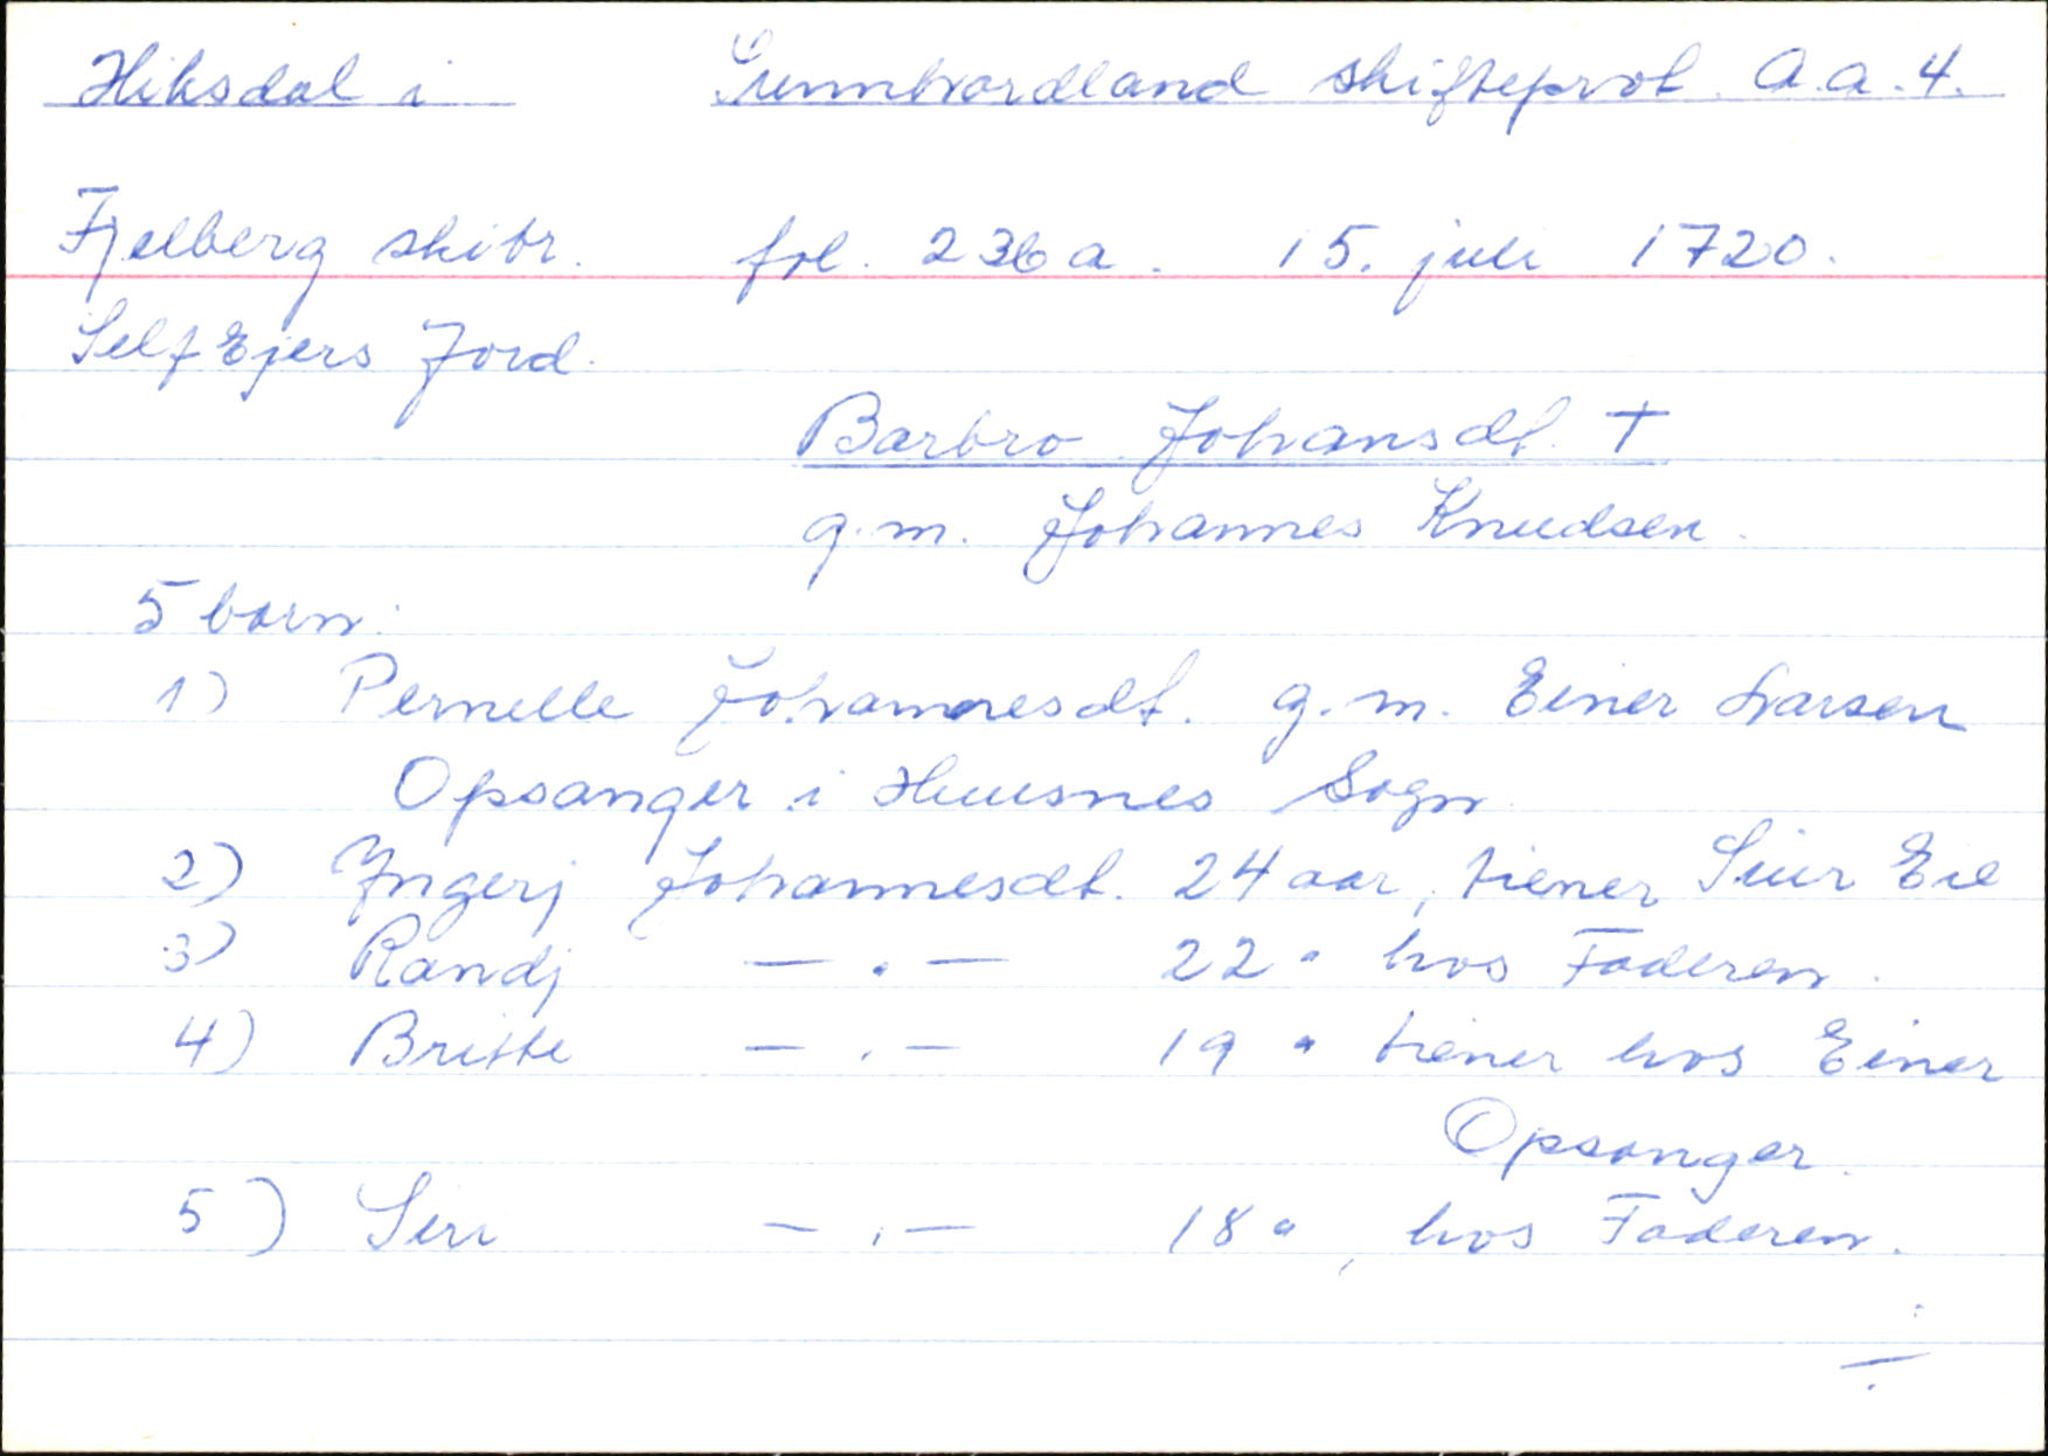 Hiksdal i Sunnhordland skifteprot. A.a.4.
Fjelberg skibr. fol. 236a. 15. juli 1720.
SelfEjers Jord.
Barbro Johansdt. †
g.m. Johannes Knudsen.
5 born:
1) Pernelle Johannesdt. g.m. Einer Larsen
Opsanger i Huusnes Sogn
2) Ingerj Johannesdt. 24 aar, tiener Siur Eie
3) Randj — . — 22 " hos Faderen.
4) Britte — . — 19 " tiener hos Einer
Opsanger.
5) Siri — . — 18 ", hos Faderen.